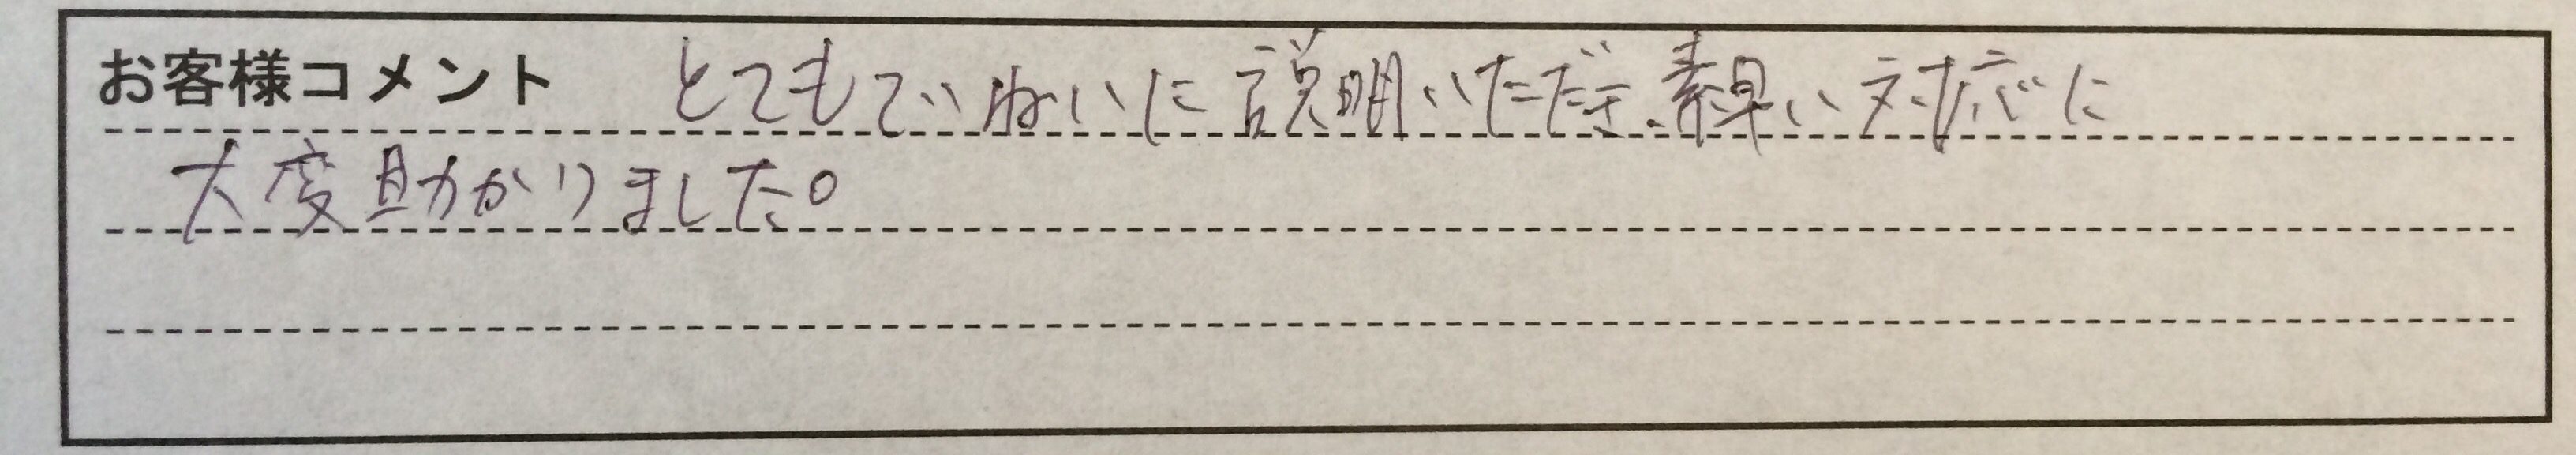 お客様コメント とてもていねいに説明いただき、素早い対応に
大変助かりました。